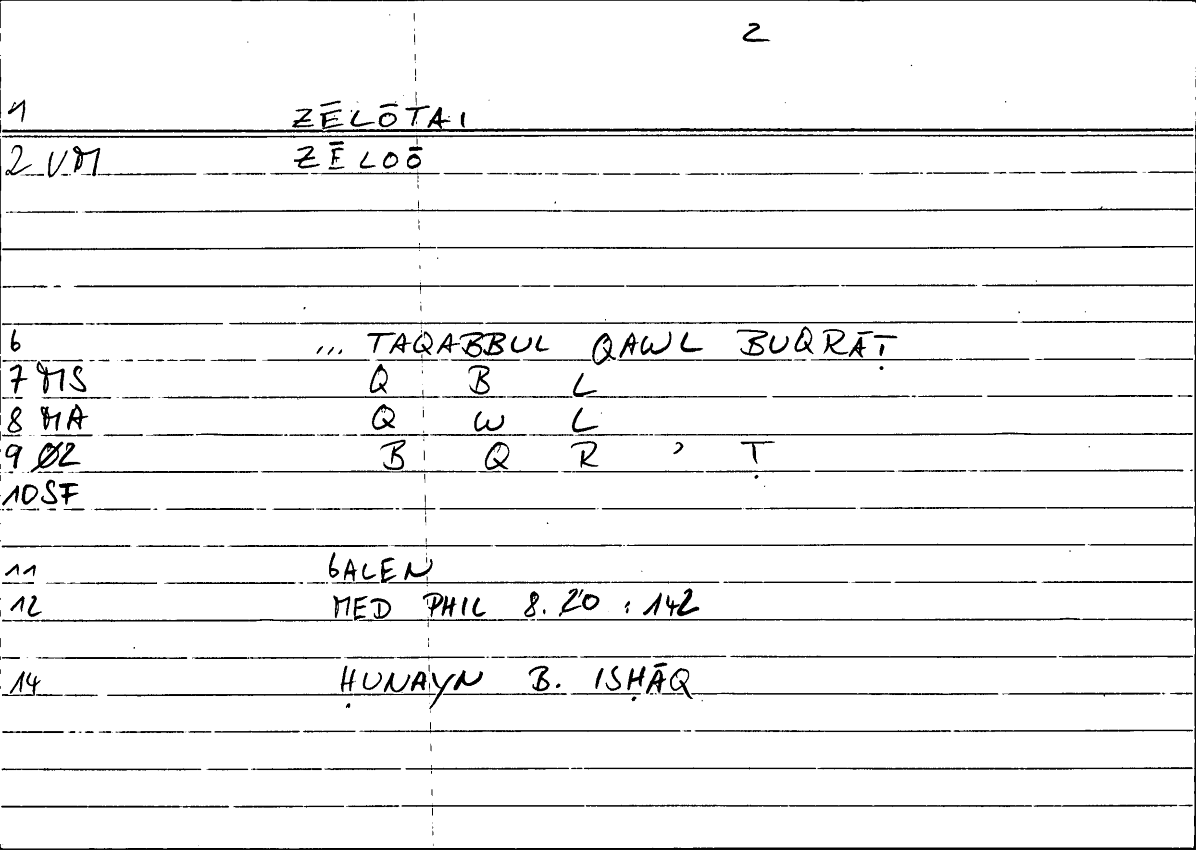 2
1 ZĒLŌTAI
2 VM ZĒLOŌ
6 ... TAQABBUL QAWL BUQRĀṬ
7 MS Q B L
8 MA Q W L
9 Ø2 B Q R ʾ Ṭ
10 SF
11 GALEN
12 MED PHIL 8. 20 : 142
14 ḤUNAYN B. ISḤĀQ